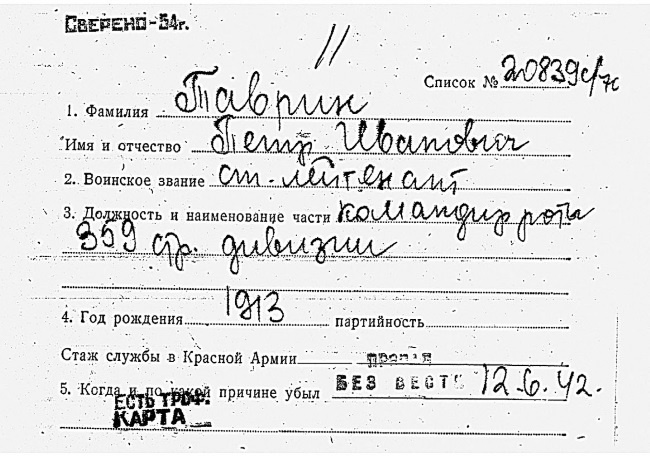 СВЕРЕНО-54г.
11
Список № 20839с/7с
1. Фамилия Таврин
Имя и отчество Петр Иванович
2. Воинское звание ст. лейтенант
3. Должность и наименование части командир роты
359 стр. дивизии
4. Год рождения 1913 партийность
Стаж службы в Красной Армии
5. Когда и по какой причине убыл БЕЗ ВЕСТИ 12.6.42.
ЕСТЬ ТРОФ.
КАРТА